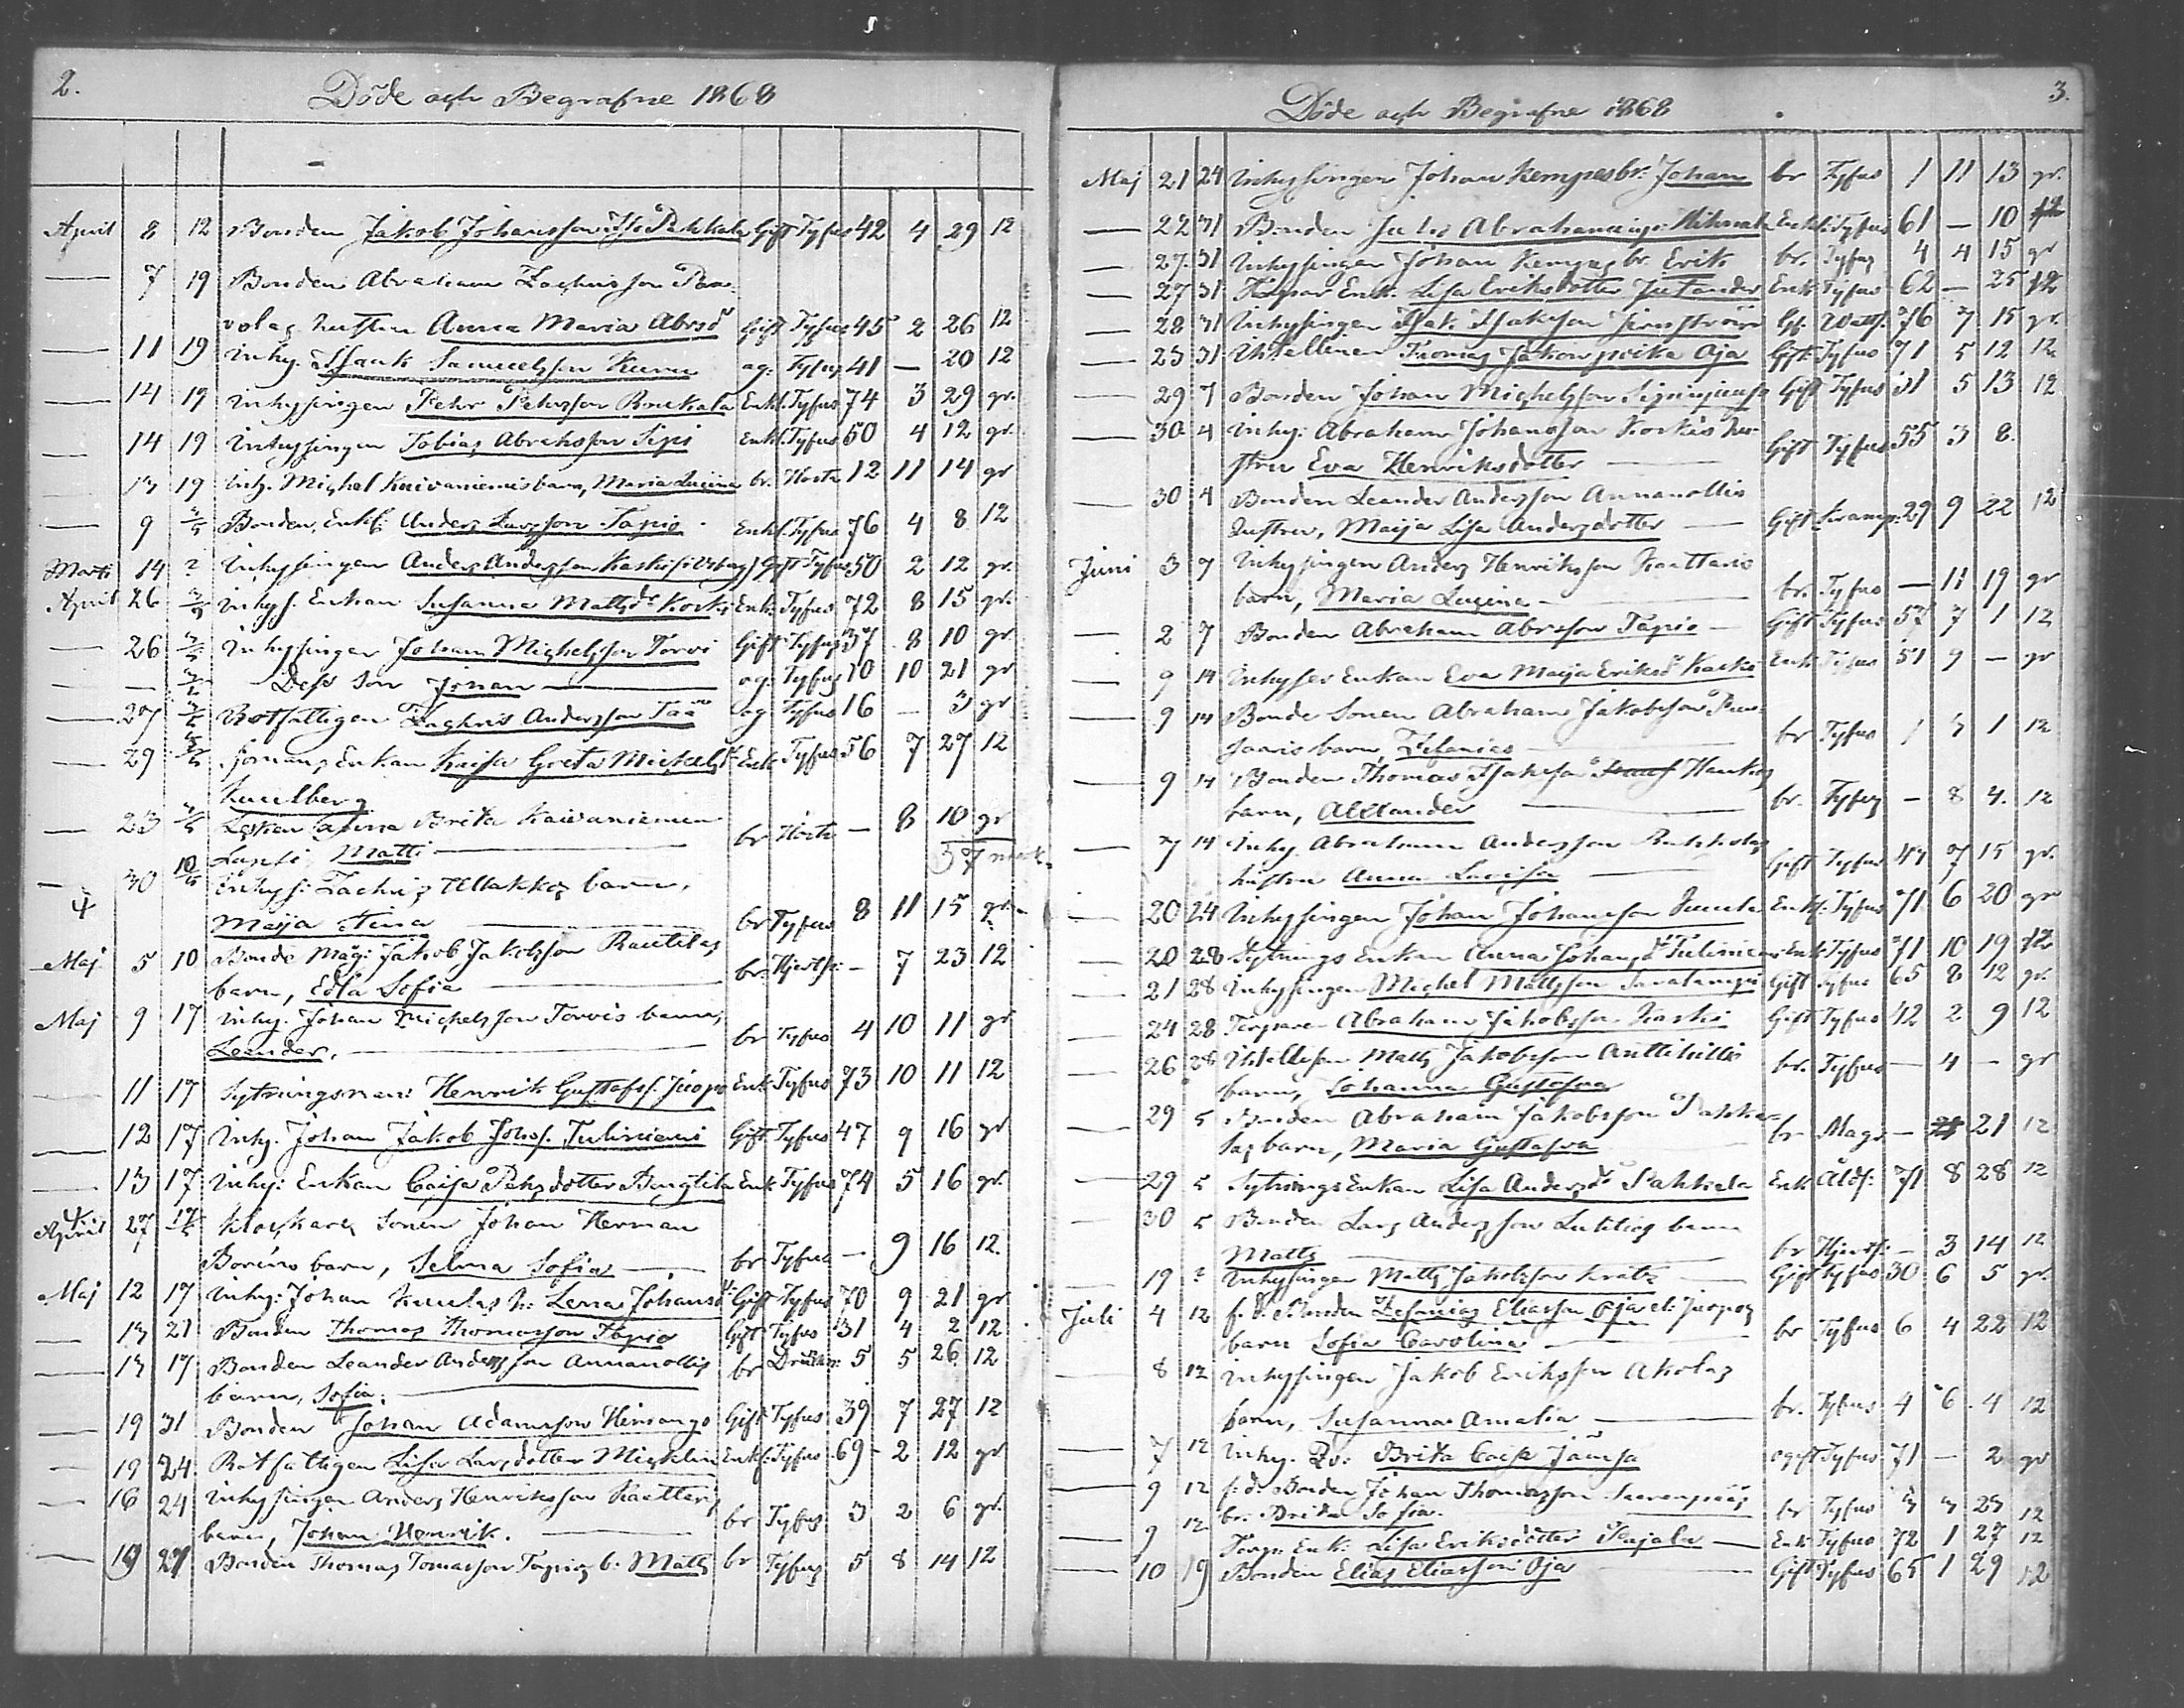 2.
Döde och Begrafne 1868
April 8 12 Bonden Jakob Johansson Iso Pahkala Gift Tyfus 42 4 29 12
— 7 19 Bonden Abraham Zachrisson
volas hustru Anna Maria Abrsdr Gift Tyfus 45 2 26 12
— 11 19 Inhy. Isaak Samuelsson ag: Tyfus 41 — 20 12
— 14 19 Inhysingen Pehr Pehrsson Raukala Enkl. Tyfus 74 3 29 gr.
— 14 19 Inhysingen Tobias Abrahsson Sipi Enkl. Tyfus 50 4 12 gr.
— 13 19 Inh. Michel Kaivaniemis barn, Maria Lucina br. Hosta 12 11 14 gr
— 9 3/5 Bonden, Enkl: Anders Larsson Tapio Enkl. Tyfus 76 4 8 12
Marti 14 ? Inhysingen Anders Andersson Kaski Gift Tyfus 50 2 12 gr.
April 26 3/5 Inhys. Enkan Susanna Mattsdr Korkis Enk: Tyfus 72 8 15 gr.
— 26 3/5 Inhysingen Johan Michelsson Torvi Gift Tyfus 37 8 10 gr.
— — 3/5 Dess Son Johan — ag. Tyfus 10 10 21 gr
— 27 3/5 Rotfattigen Zachris Andersson ag Tyfus 16 — 3 gr
— 29 3/5 Enkan Kaisa Greta Michelsdr Enk Tyfus 56 7 27 12
— 23 Brita Kaivaniemen
Matti — br Hosta — 8 10 gr
37 mark.
— 30 10/5 Inhys: Zachris Ullakkos barn,
Maija Stina — br Tyfus 8 11 15 gr.
Maj 5 10 Bonde Måg: Jakob Jakobsson Rautilas
barn, Edla Sofia — br. Hjertsp: — 7 23 12
Maj 9 17 Inhy. Johan Michelsson Torvis barn,
Leander. — br Tyfus 4 10 11 gr
— 11 17 Sytningsman: Henrik Gustafss. Juopo Enk: Tyfus 73 10 11 12
— 12 17 Inhy. Johan Jakob Johss. Tuliniemi Gift Tyfus 47 9 16 gr
— 13 17 Inhy: Enkan Caisa Pehrsdotter Enk Tyfus 74 5 16 gr.
April 27 17/5 Klockare Sonen Johan Herman
Boréns barn, Selma Sofia — br Tyfus — 9 16 12.
Maj 12 17 Inhy: Johan Kuulas h: Lena Johansdr Gift Tyfus 70 9 21 gr
— 13 21 Bonden Thomas Thomasson Tapio Gift Tyfus 31 4 2 12
— 13 17 Bonden Leander Andersson Annanollis
barn, Sofia. — br 5 5 26 12
— 19 31 Bonden Johan Adamsson Hirvango Gift Tyfus 39 7 27 12
— 19 24 Rotfattigen Lisa Larsdotter Enkf: Tyfus 69 2 12 gr
— 16 24 Inhysingen Anders Henriksson Raattaris
barn, Johan Henrik. — br Tyfus 3 2 6 gr.
— 19 27 Bonden Thomas Tomasson Tapios b. Matts br Tyfus 5 8 14 12
3.
Döde och Begrafne 1868
Maj 21 24 Inhysingen Johan Kempes br: Johan br Tyfus 1 11 13 gr.
— 22 31 Bonden Abrahamsson Enkl: Tyfus 61 — 10 12
— 27. 31 Inhysingen Johan Kempes br. Erik br. Tyfus 4 4 15 gr
— 27 31 Enk: Lisa Eriksdotter Enk Tyfus 62 — 25 12
— 28 31 Inhysingen Isak Isaksson Gf: Watts. 76 7 15 gr.
— 23 31 Thomas Oja Gift. Tyfus 71 5 12 12
— 29 7 Bonden Johan Michelsson Gift Tyfus 31 5 13 12
— 30 4 Inhy: Abraham Johansson Korkis hu-
stru Eva Henriksdotter — Gift Tyfus 55 3 8.
— 30 4 Bonden Leander Andersson Annanollis
hustru, Maija Lisa Andersdotter — Gift Kramp. 29 9 22 12
Juni 3 7 Inhysingen Anders Henriksson Raattaris
barn, Maria Lucina — br. Tyfus — 11 19 gr
— 2 7 Bonden Abraham Abrsson Tapio — Gift Tyfus 57 7 1 12
— 9 14 Inhyses Enkan Eva Maija Eriksdr Kaski Enk Tyfus 51 9 — gr
— 9 14 Bonde Sonen Abraham Jakobsson
saaris barn, Zefanias — br Tyfus 1 3 1 12
— 9 14 Bonden Thomas Isaksson Haukos
barn, Alexander — br. Tyfus — 8 4. 12
— 7 14 Inhy. Abraham Andersson
hustru Anna Lovisa — Gift Tyfus 47 7 15 gr.
— 20 24 Inhysingen Johan Johansson Enkf. Tyfus 71 6 20 gr
— 20 28 Sytnings Enkan Anna Johansdr Tuliniemi Enk Tyfus 71 10 19 12
— 21 28 Inhysingen Michel Mattsson Gift Tyfus 65 8 12 gr.
— 24 28 Torparen Abraham Jakobsson Kaski Gift Tyfus 42 2 9 12
— 26 28 Matts Jakobsson Anttihillis
barn, Johanna Gustafva br. Tyfus — 4 — gr
— 29 5 Bonden Abraham Jakobsson Pahka-
las barn, Maria Gustafva br Mags — 21 12
— 29 5 Sytnings Enkan Lisa Andersdr Pahkala Enk Åldf: 71 8 28 12
— 30 5 Bonden Lars Andersson barn
Matts — br Hjertsp: — 3 14 12
— 19 ? Inhysingen Matts Jakobsson Krats — Gift Tyfus 30 6 5 gr.
Juli 4 12 f.d. Bonden Zefanias Eliasson Oja el: Juopos
barn Sofia Carolina — br Tyfus 6 4 22 12
8 12 Inhysingen Jakob Eriksson Akolas
barn, Susanna Amalia — br. Tyfus 4 6 4 12
— 7 12 Inhy. Brita Caisa Jämsä ogift Tyfus 71 — 2 gr
— 9 12 f:d: Bonden Johan Thomasson Saarenpääs
br. Brita Sofia. br Tyfus 3 3 23 12
— 9 12 Enk: Lisa Eriksdotter — Enk Tyfus 72 1 27 12
— 10 19 Bonden Elias Eliasson Oja — Gift Tyfus 65 1 29 12